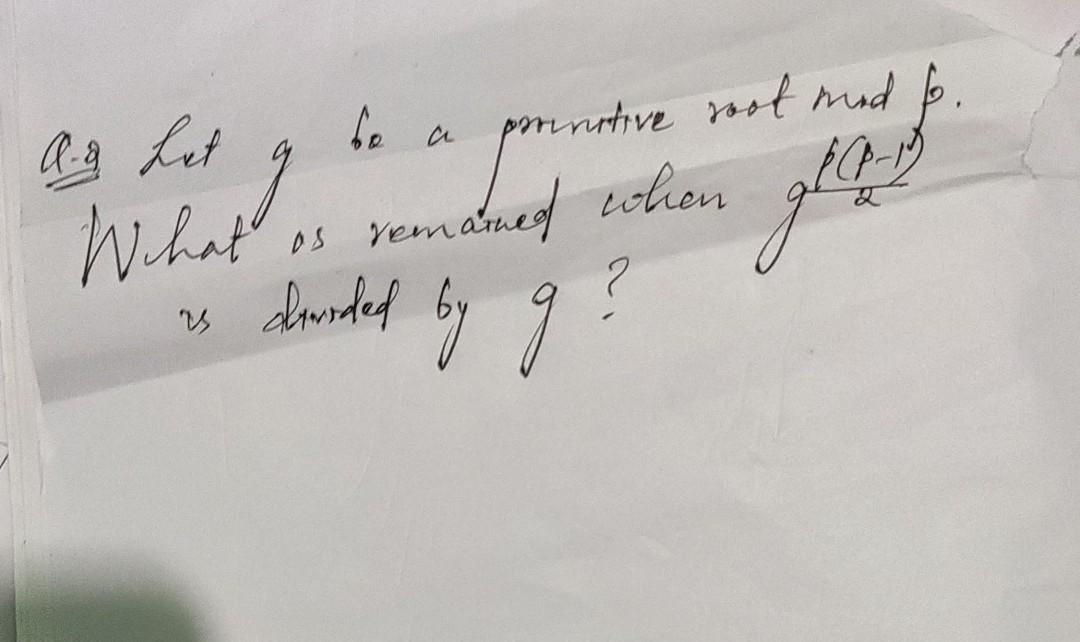 Q.2 Let g be a primitive root mod p.
What is remained when g^{\frac{p(p-1)}{2}}
is divided by g ?